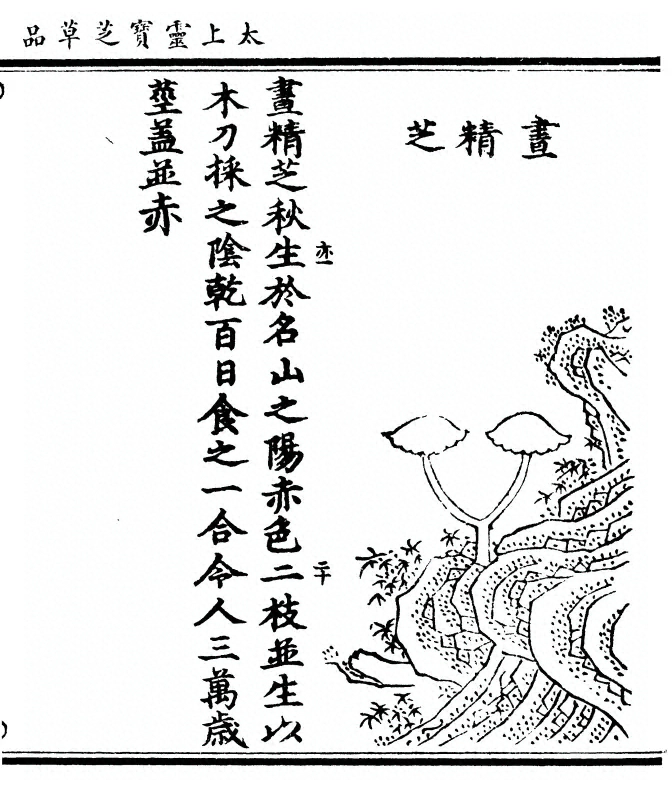 太上靈寶芝草品
晝精芝
晝精芝秋生於名山之陽赤色二枝並生以
亦一
二十
木刀採之陰乾百日食之一合令人三萬歲
莖蓋並赤